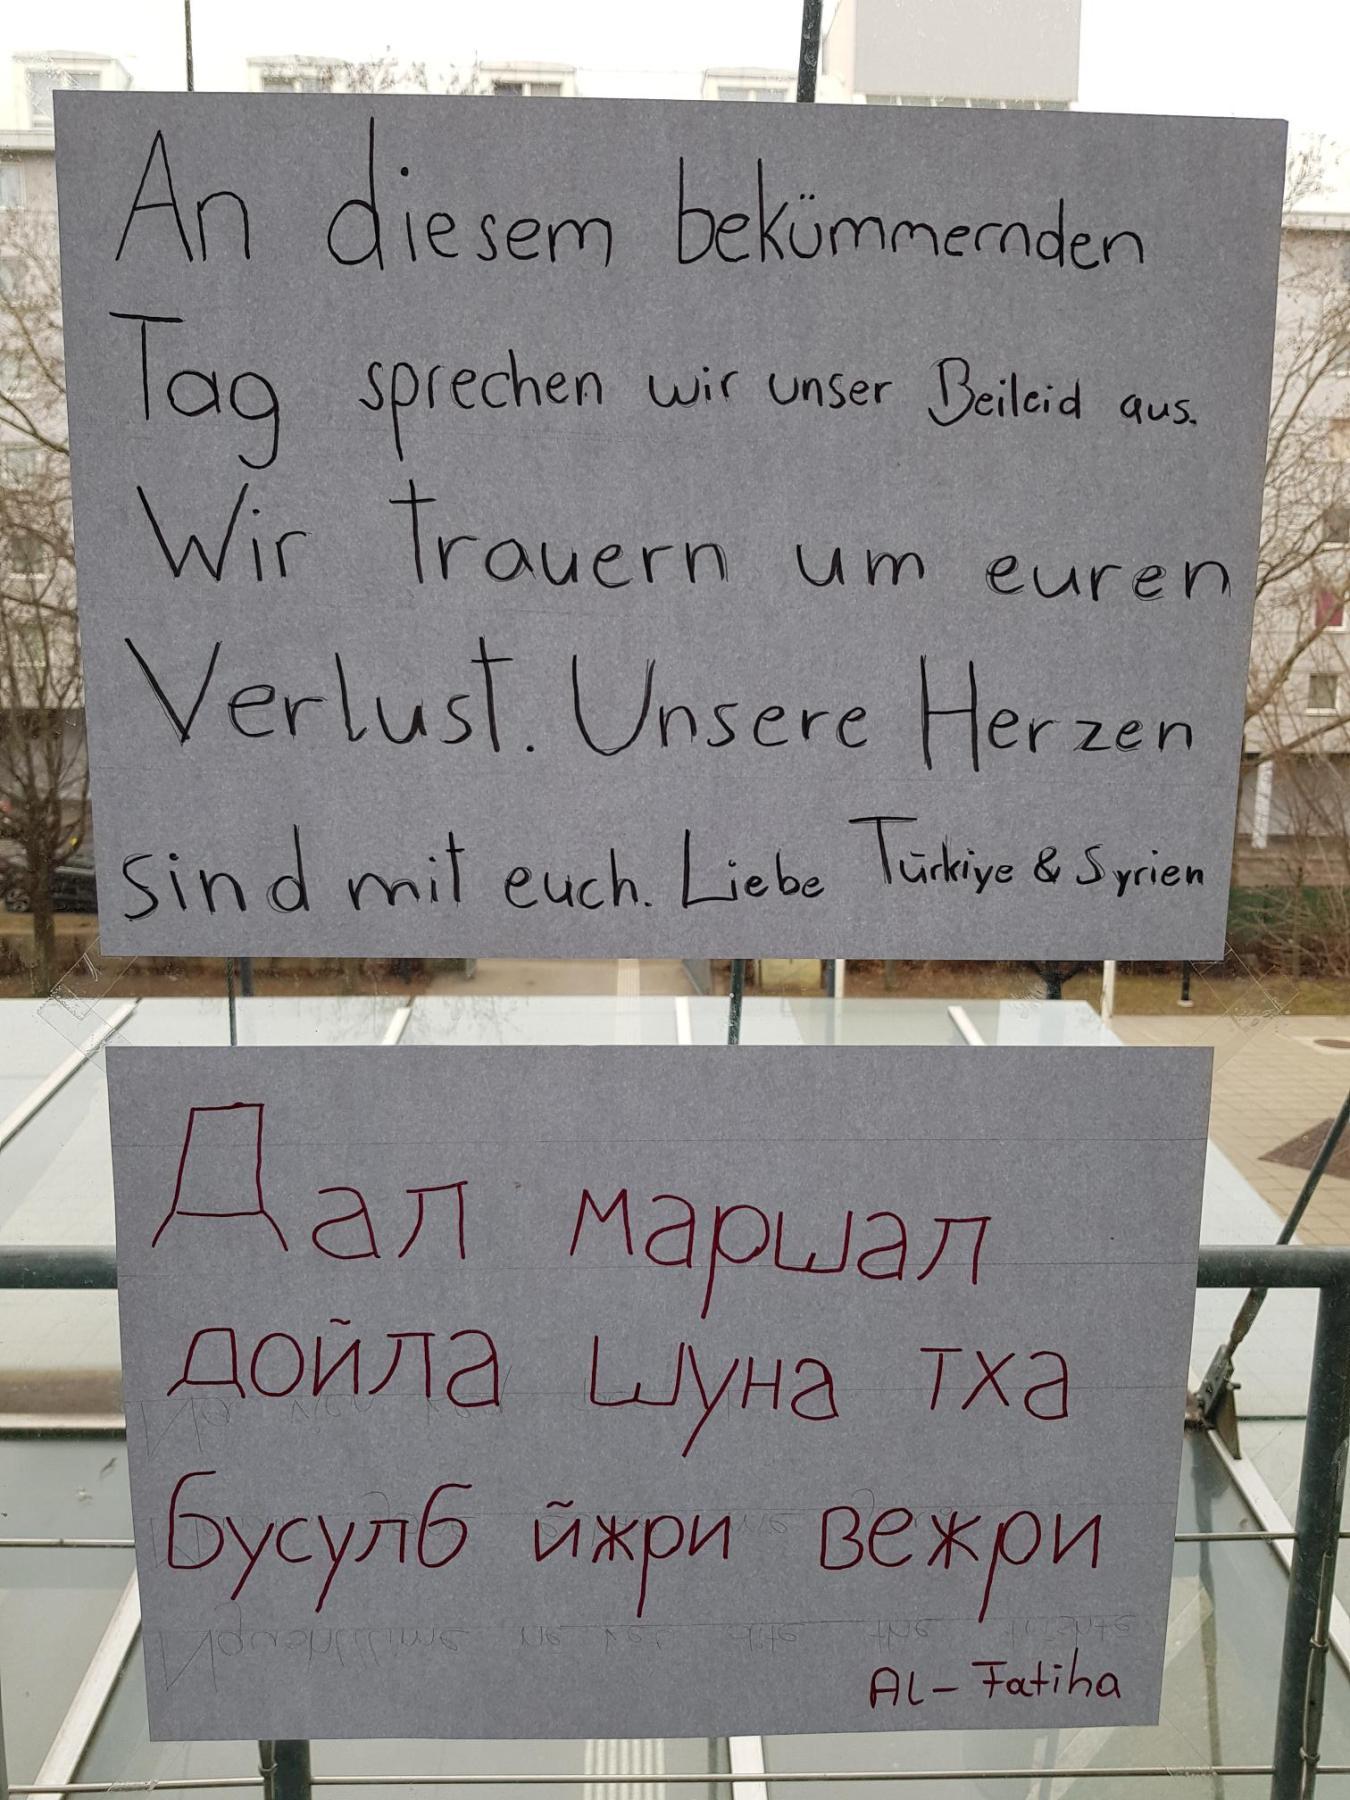 An diesem bekümmernden
Tag sprechen wir unser Beileid aus.
Wir trauern um euren
Verlust. Unsere Herzen
sind mit euch. Liebe Türkiye & Syrien
Дал маршал
дойла шуна тха
бусулб йижри вежри
Al-Fatiha